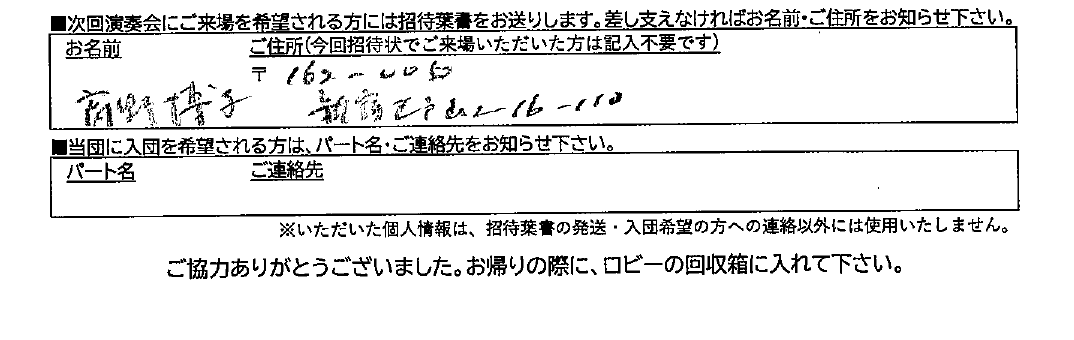 ■次回演奏会にご来場を希望される方には招待葉書をお送りします。差し支えなければお名前・ご住所をお知らせ下さい。
お名前 ご住所(今回招待状でご来場いただいた方は記入不要です)
〒 162-0050
野博子 新宿2-16-110
■当団に入団を希望される方は、パート名・ご連絡先をお知らせ下さい。
パート名 ご連絡先
※いただいた個人情報は、招待葉書の発送・入団希望の方への連絡以外には使用いたしません。
ご協力ありがとうございました。お帰りの際に、ロビーの回収箱に入れて下さい。